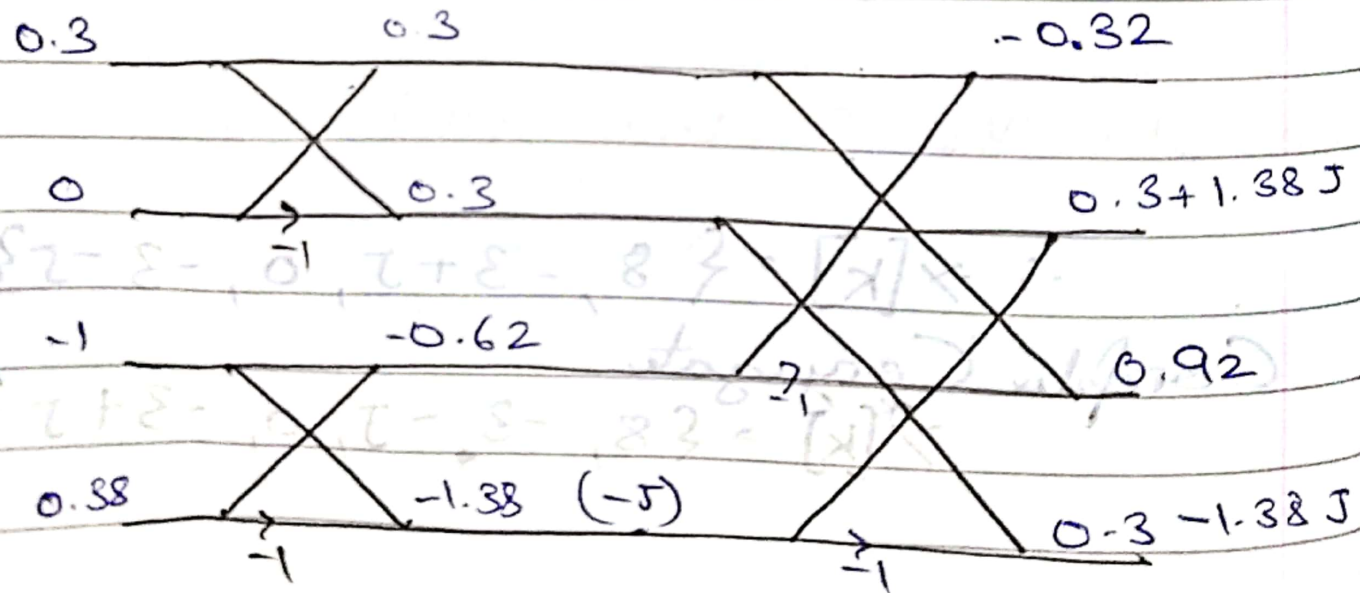 0.3 0.3 -0.32
0 0.3 0.3+1.38J
-1
-1 -0.62 0.92
-1
0.38 -1.38 (-J) 0.3-1.38J
-1 -1